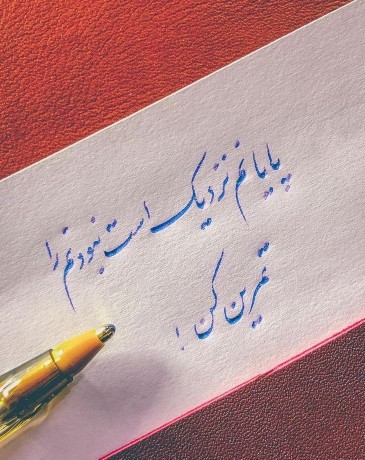 پایانم نزدیک است نبودنم را
تمرین کن !